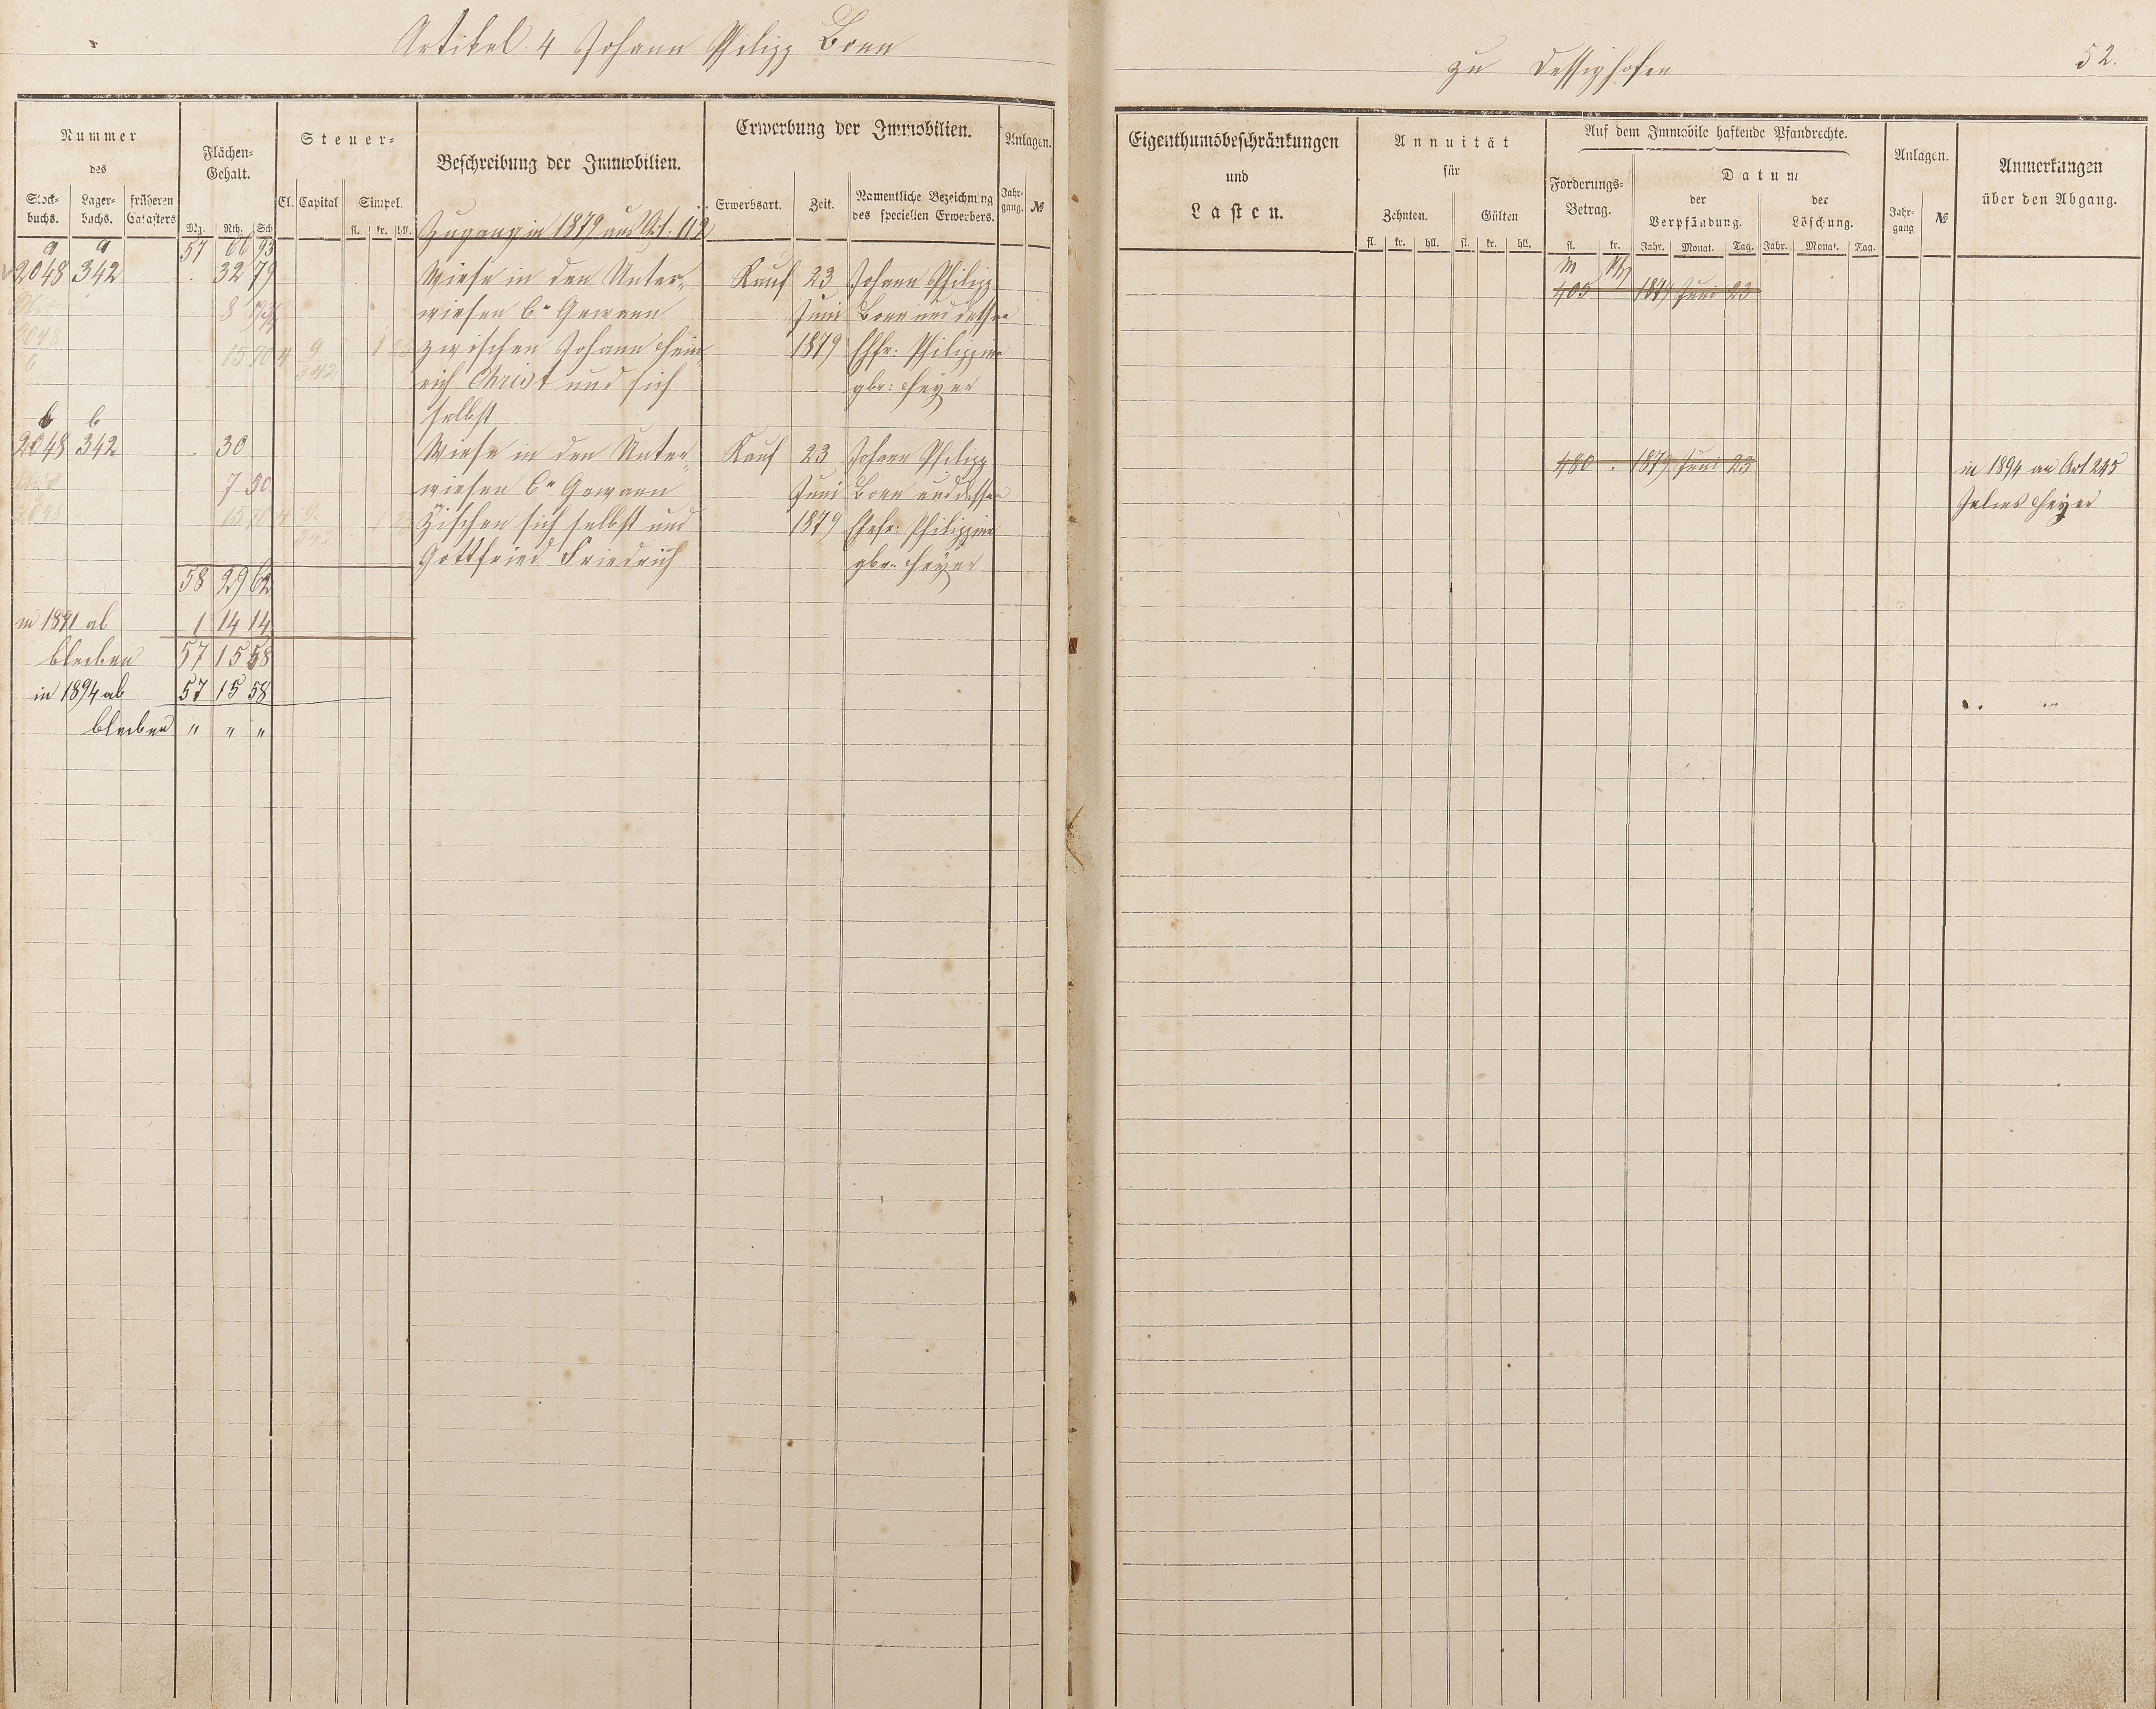 Artikel 4 Johann Philipp Bonn
zu Dessighofen
52.
Nummer
des
Stock-
buchs.
Lager-
buchs.
früheren
Catasters
Flächen-
Gehalt.
Mg. Rth. Sch
Steuer-
Cl. Capital Simpel.
fl. kr. hll.
Beschreibung der Immobilien.
Erwerbung der Immobilien.
Erwerbsart. Zeit.
Namentliche Bezeichnung
des speciellen Erwerbers.
Anlagen.
Jahr-
gang. №
Eigenthumsbeschränkungen
und
Lasten.
Annuität
für
Zehnten. Gülten
fl. kr. hll. fl. kr. hll.
Auf dem Immobile haftende Pfandrechte.
Forderungs-
Betrag.
fl. kr.
Datum
der
Verpfändung.
der
Löschung.
Jahr. Monat. Tag. Jahr. Monat. Tag.
Anlagen.
Jahr-
gang №
Anmerkungen
über den Abgang.
Zugang in 1879 aus Art. 112
a a 57 66 93
2048 342 . 32 79 Wiese in den Unter- Kauf 23 Johann Philipp
wiesen 6n Gewann Juni Bonn und dessen
zwischen Johann Hein- 1879 Ehfr: Philippine
rich Christ und sich gbr: Heyer
selbst
M Pfg
405 1879 Juni 23
b b
2048 342 . 30 Wiese in den Unter- Kauf 23 Johann Philipp
7 50 wiesen 6n Gewann Juni Bonn und dessen
Zischen sich selbst und 1879 Ehefr: Philippine
Gottfried Friedrich gbr: Heyer
480 . 1879 Juni 23 in 1894 an Art 245
Julius Heyer
58 29 62
in 1891 ab 1 14 14
bleiben 57 15 58
in 1894 ab 57 15 58
bleiben " " "